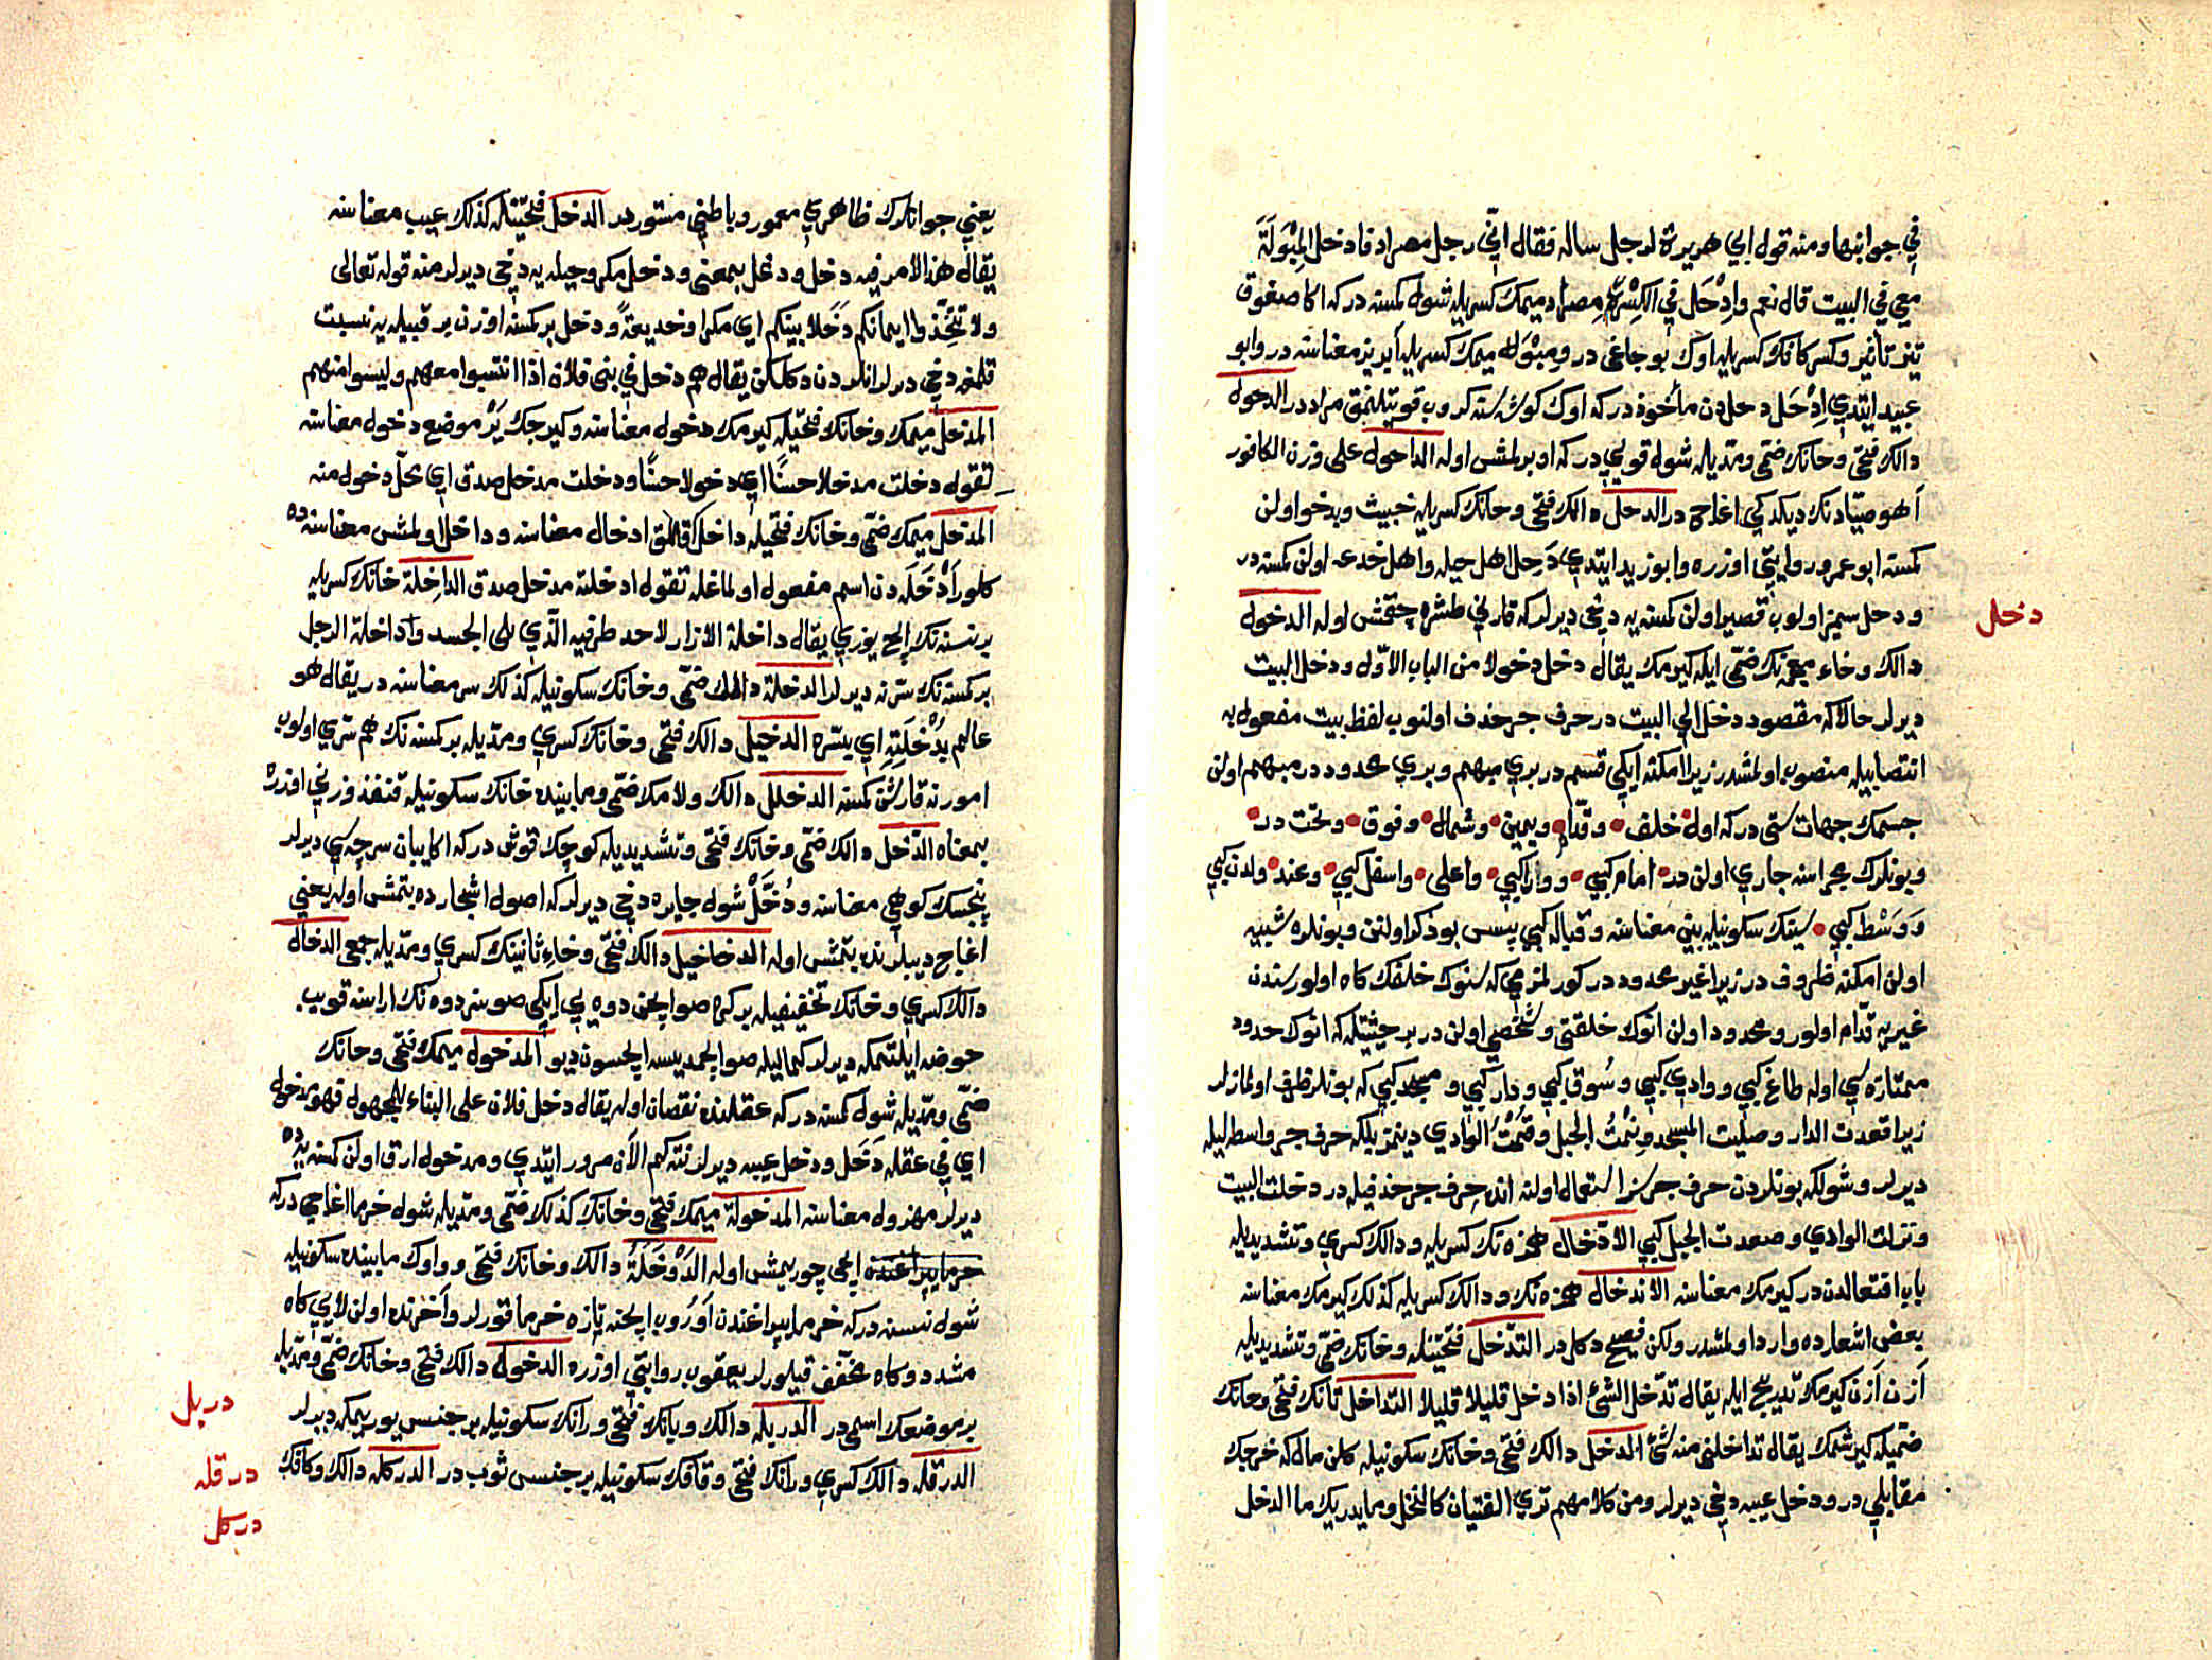 في جوانبها ومنه قول ابي هريرة لرجل ساله فقال انّي رجل مصراد فادخل المِبْوَلَةَ
معي في البيت قال نعم وادْحَل في الكِسْرِ مصراد ميمك كسريله شول كمسنه دركه اكا صغوق
تيز تأثير وكسر كافك كسريله اوك بوجاغى در ومِبْوَله ميمك كسريله ابريز معناسنه در وابو
عبيد ايتدي اِدْحَل دحلدن مأخوذ دركه اوك كوشه سنه كروب قويتلنمق مراددر الدحول
دالك فتحى وحانك ضمّى ومدّيله شول قويي دركه اوبرلمش اوله الداحول على وزن الكافور
آهو صيّادنك ديكدكي اغاج در الدحل دالك فتحى وحانك كسريله خبيث وبدخو اولن
كمسنه ابو عمرو روايتى اوزره وابو زيد ايتدي دَحِل اهل حيله واهل خدعه اولن كمسنه در
ودحل سميز اولوب قصير اولن كمسنه يه دخى ديرلر كه قارني طشره چقمش اوله الدخول
دالك وخاء معجمه نك ضمّى ايله كيرمك يقال دخل دخولا من الباب الاوّل ودخل البيت
ديرلر حالا كه مقصود دخل الي البيت در حرف جر حذف اولنوب لفظ بيت مفعول به
انتصابيله منصوب اولمشدر زيرا امكنه ايكي قسم در بري مبهم وبري محدود در مبهم اولن
جسمك جهات ستى دركه اول خلف وقدّام ويمين وشمال وفوق وتحت در
وبونلرك مجراسنه جاري اولن در امام كبي ووراكبي واعلى واسفل كبي وعند ولدن كبي
وَوَسْط كبي سينك سكونيله بين معناسنه وقبال كبي پس بو ذكر اولنن وبونلره شبيه
اولن امكنه ظروف در زيرا غير محدود در كورلمزمي كه سنوك خلفك كاه اولور سندن
غيريه قدّام اولور ومحدود اولن انوك خلقتى وشخصي اولن در بر حيثيتله كه انوك حدود
ممتازه سي اوله طاغ كبي ووادي كبي وسُوق كبي ودار كبي ومسجد كبي كه بونلر ظرف اولمازلر
زيرا قعدت الدار وصلّيت المسجد ونِمْتُ الجبل وقُمْتُ الوادي دينمز بلكه حرف جر واسطه ليله
ديرلر وشولكه بونلردن حرف جر سز استعمال اولنه انده حرف جر حذفيله در دخلت البيت
ونزلت الوادي وصعدت الجبل كبي الادّخال همزه نك كسريله ودالك كسري وتشديديله
باب افتعالدن در كيرمك معناسنه الاندخال همزه نك ودالك كسريله كذلك كيرمك معناسنه
بعض اشعارده وارد اولمشدر ولكن فصيح دكلدر التدّخل فتحتينله وخانك ضمّى وتشديديله
آزن آزن كيرمك تدريج ايله يقال تدّخل الشئ اذا دخل قليلا قليلا التداخل تانك فتحى وخانك
ضميله كيرشمك يقال تداخلني منه شئ المدخل دالك فتحى وخانك سكونيله كلن مال كه خرجك
مقابلي در ودخل عيبه دخي ديرلر ومن كلامهم تري الفتيان كالنخل وما يدريك ما الدخل
دخل
يعني جوانلرك ظاهري معمور وباطني مستوردر الدخل فتحتينله كذلك عيب معناسنه
يقال هذا الامر فيه دخل ودغل بمعنى ودخل مكر وحيله يه دخى ديرلر منه قوله تعالى
ولا تتخذوا ايمانكم دَخَلا بينكم اي مكرا وخديعةً ودخل بر كمسنه اوزن بر قبيله يه نسبت
قلمغه دخي ديرلر انلردن دكلكن يقال هم دخل في بنى فلان اذا انتسبوا معهم وليسوا منهم
المدخل ميمك وخانك فتحيله كيرمك دخول معناسنه وكيرجك يَرْ موضع دخول معناسنه
تقول دخلت مدخلا حسنًا اي دخولا حسنًا ودخلت مدخل صدق اي محلّ دخول منه
المدخل ميمك ضمّى وخانك فتحيله داخل قلمق ادخال معناسنه وداخل اولمش معناسنه ده
كلور اَدْخَلَه دن اسم مفعول اولماغله تقول ادخلته مدخل صدق الداخِلة خانك كسريله
بر نسنه نك ايچ يوزي يقال داخلة الازار لاحد طرفيه الّذي يلى الجسد وداخلة الرجل
بر كمسنه نك سرّنه ديرلر الدخلة دالك ضمّى وخانك سكونيله كذلك سر معناسنه در يقال هو
عالم بِدُخْلَتِهِ اي بسرّه الدخيل دالك فتحى وخانك كسري ومدّيله بر كمسنه نك هم سرّي اولوب
امورنه قارشن كمسنه الدخلل دالك ولامك ضمّى ومابينده خانك سكونيله قنفذ وزني اوزره
بمعناه الدخّل دالك ضمّى وخانك فتحى وتشديديله كوچك قوش دركه اكا يبان سرچه سي ديرلر
پنجسك كوهي معناسنه ودُخَّلْ شول چايره دخي ديرلر كه اصول اشجارده بتمش اوله يعني
اغاج ديبلرنده بتمش اوله الدخاخيل دالك فتحى وخاء ثانينك كسري ومدّيله جمعى الدخال
دالك كسري وخانك تخفيفيله بر كره صو ايچن دوه يي ايكي صوسز دوه نك اراسنه قويب
حوضه ايلتمكه ديرلر كماليله صو ايچمديسه ايچسون ديو المدخول ميمك فتحى وخانك
ضمّى ومدّيله شول كمسنه دركه عقلنده نقصان اوله يقال دخل فلان على البناء للمجهول فهو مدخول
اي في عقله دَخَل ودخل عيبه ديرلر نتكم الآن مرور ايتدي ومدخول ارق اولن كمسنه يه ده
ديرلر مهزول معناسنه المدخولة ميمك فتحى وخانك كذلك ضمّى ومدّيله شول خرما اغاجي دركه
ايچى چوريمش اوله الدَّوْخَلَةُ دالك وخانك فتحى وواوك مابينده سكونيله
شول نسنه دركه خرما يپراغندن اَوُروب ايچنه تازه خرما قورلر وآخرنده اولن لامي كاه
مشدد وكاه مخفّف قيلورلر يعقوب روايتي اوزره الدخول دالك فتحى وخانك ضمّى ومدّيله
بر موضعك اسمى در الدربله دالك وبانك فتحى ورانك سكونيله بر جنس يوريمكه ديرلر
الدرقله دالك كسري ورانك فتحى وقافك سكونيله بر جنس ثوب در الدركله دالك وكافك
دربل
درقله
دركل